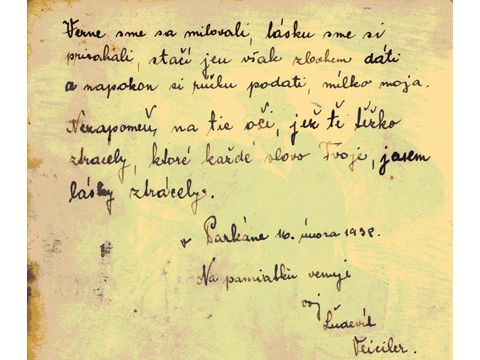 Verne sme sa milovali, lásku sme si
prisahali, stačí jen však zbohem dáti
a napokon si rúčku podati, milko moja.
Nezapomeň, na tie oči, jež tě těžko
ztracely, ktoré každé slovo Tvoje, jasem
lásky ztrácely.
v Parkáne 16. února 1938.
Na pamiatku venuje
voj
Ľudevít